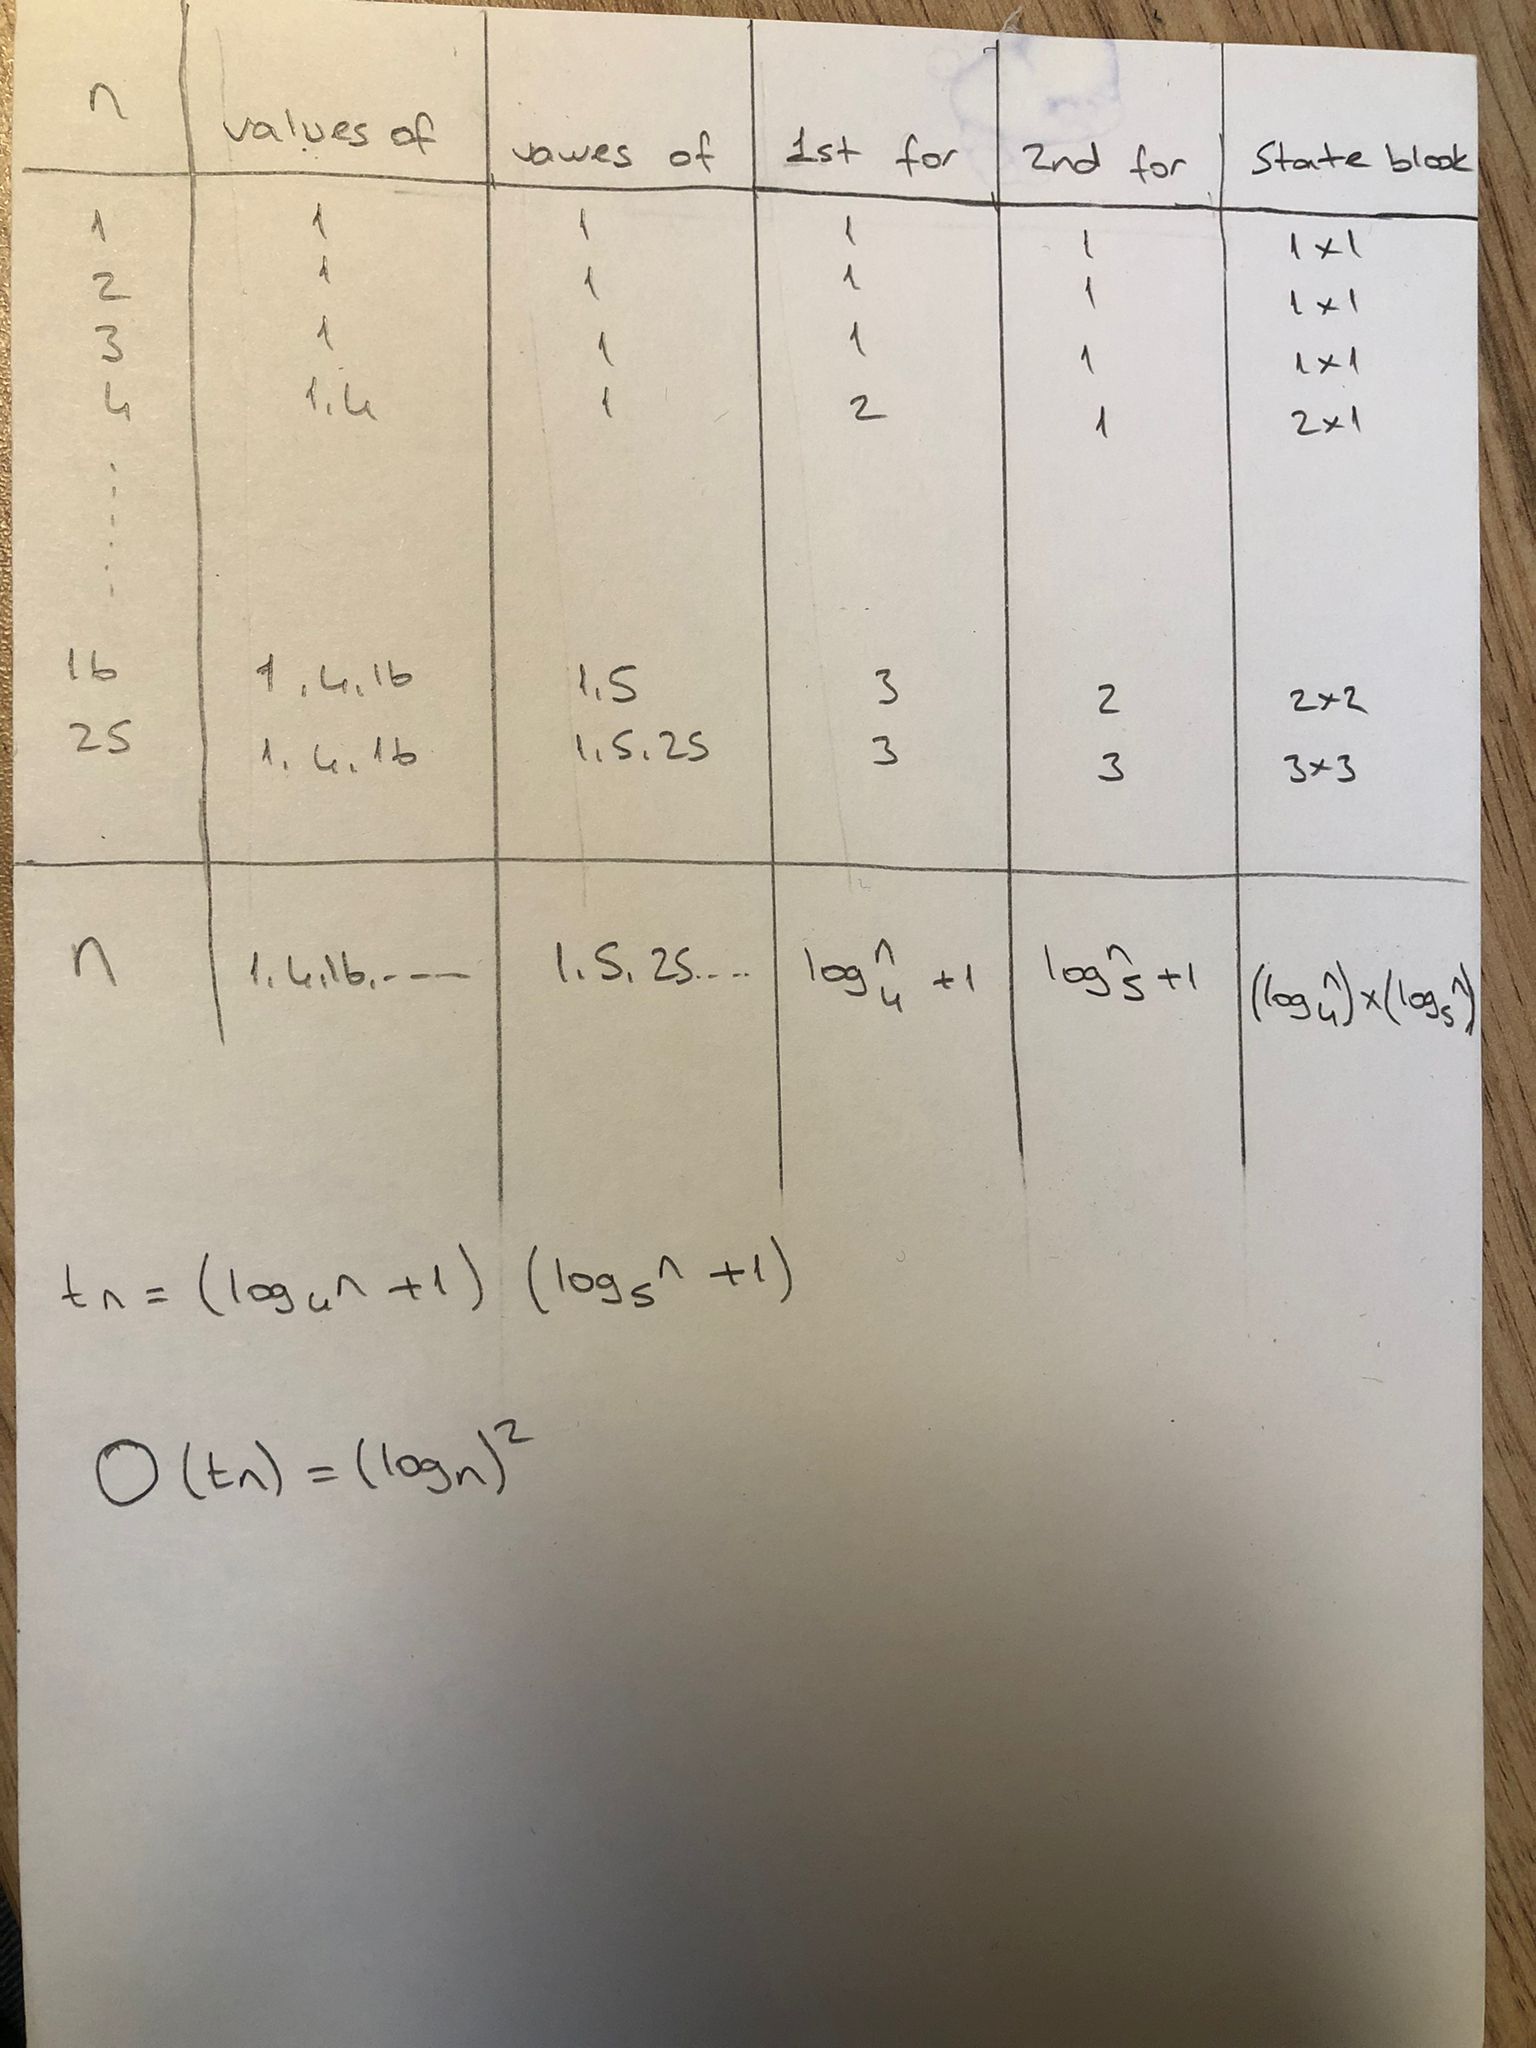 n values of vawes of 1st for 2nd for State blook
1 1 1 1 1 1×1
2 1 1 1 1 1×1
3 1 1 1 1 1×1
4 1.4 1 2 1 2×1
16 1.4.16 1.5 3 2 2×2
25 1.4.16 1.5.25 3 3 3×3
n 1.4.16.--- 1.5.25.... log₄ⁿ +1 log₅ⁿ +1 (log₄ⁿ)×(log₅ⁿ)
tn = (log₄n +1) (log₅n +1)
O(tn) = (logn)²